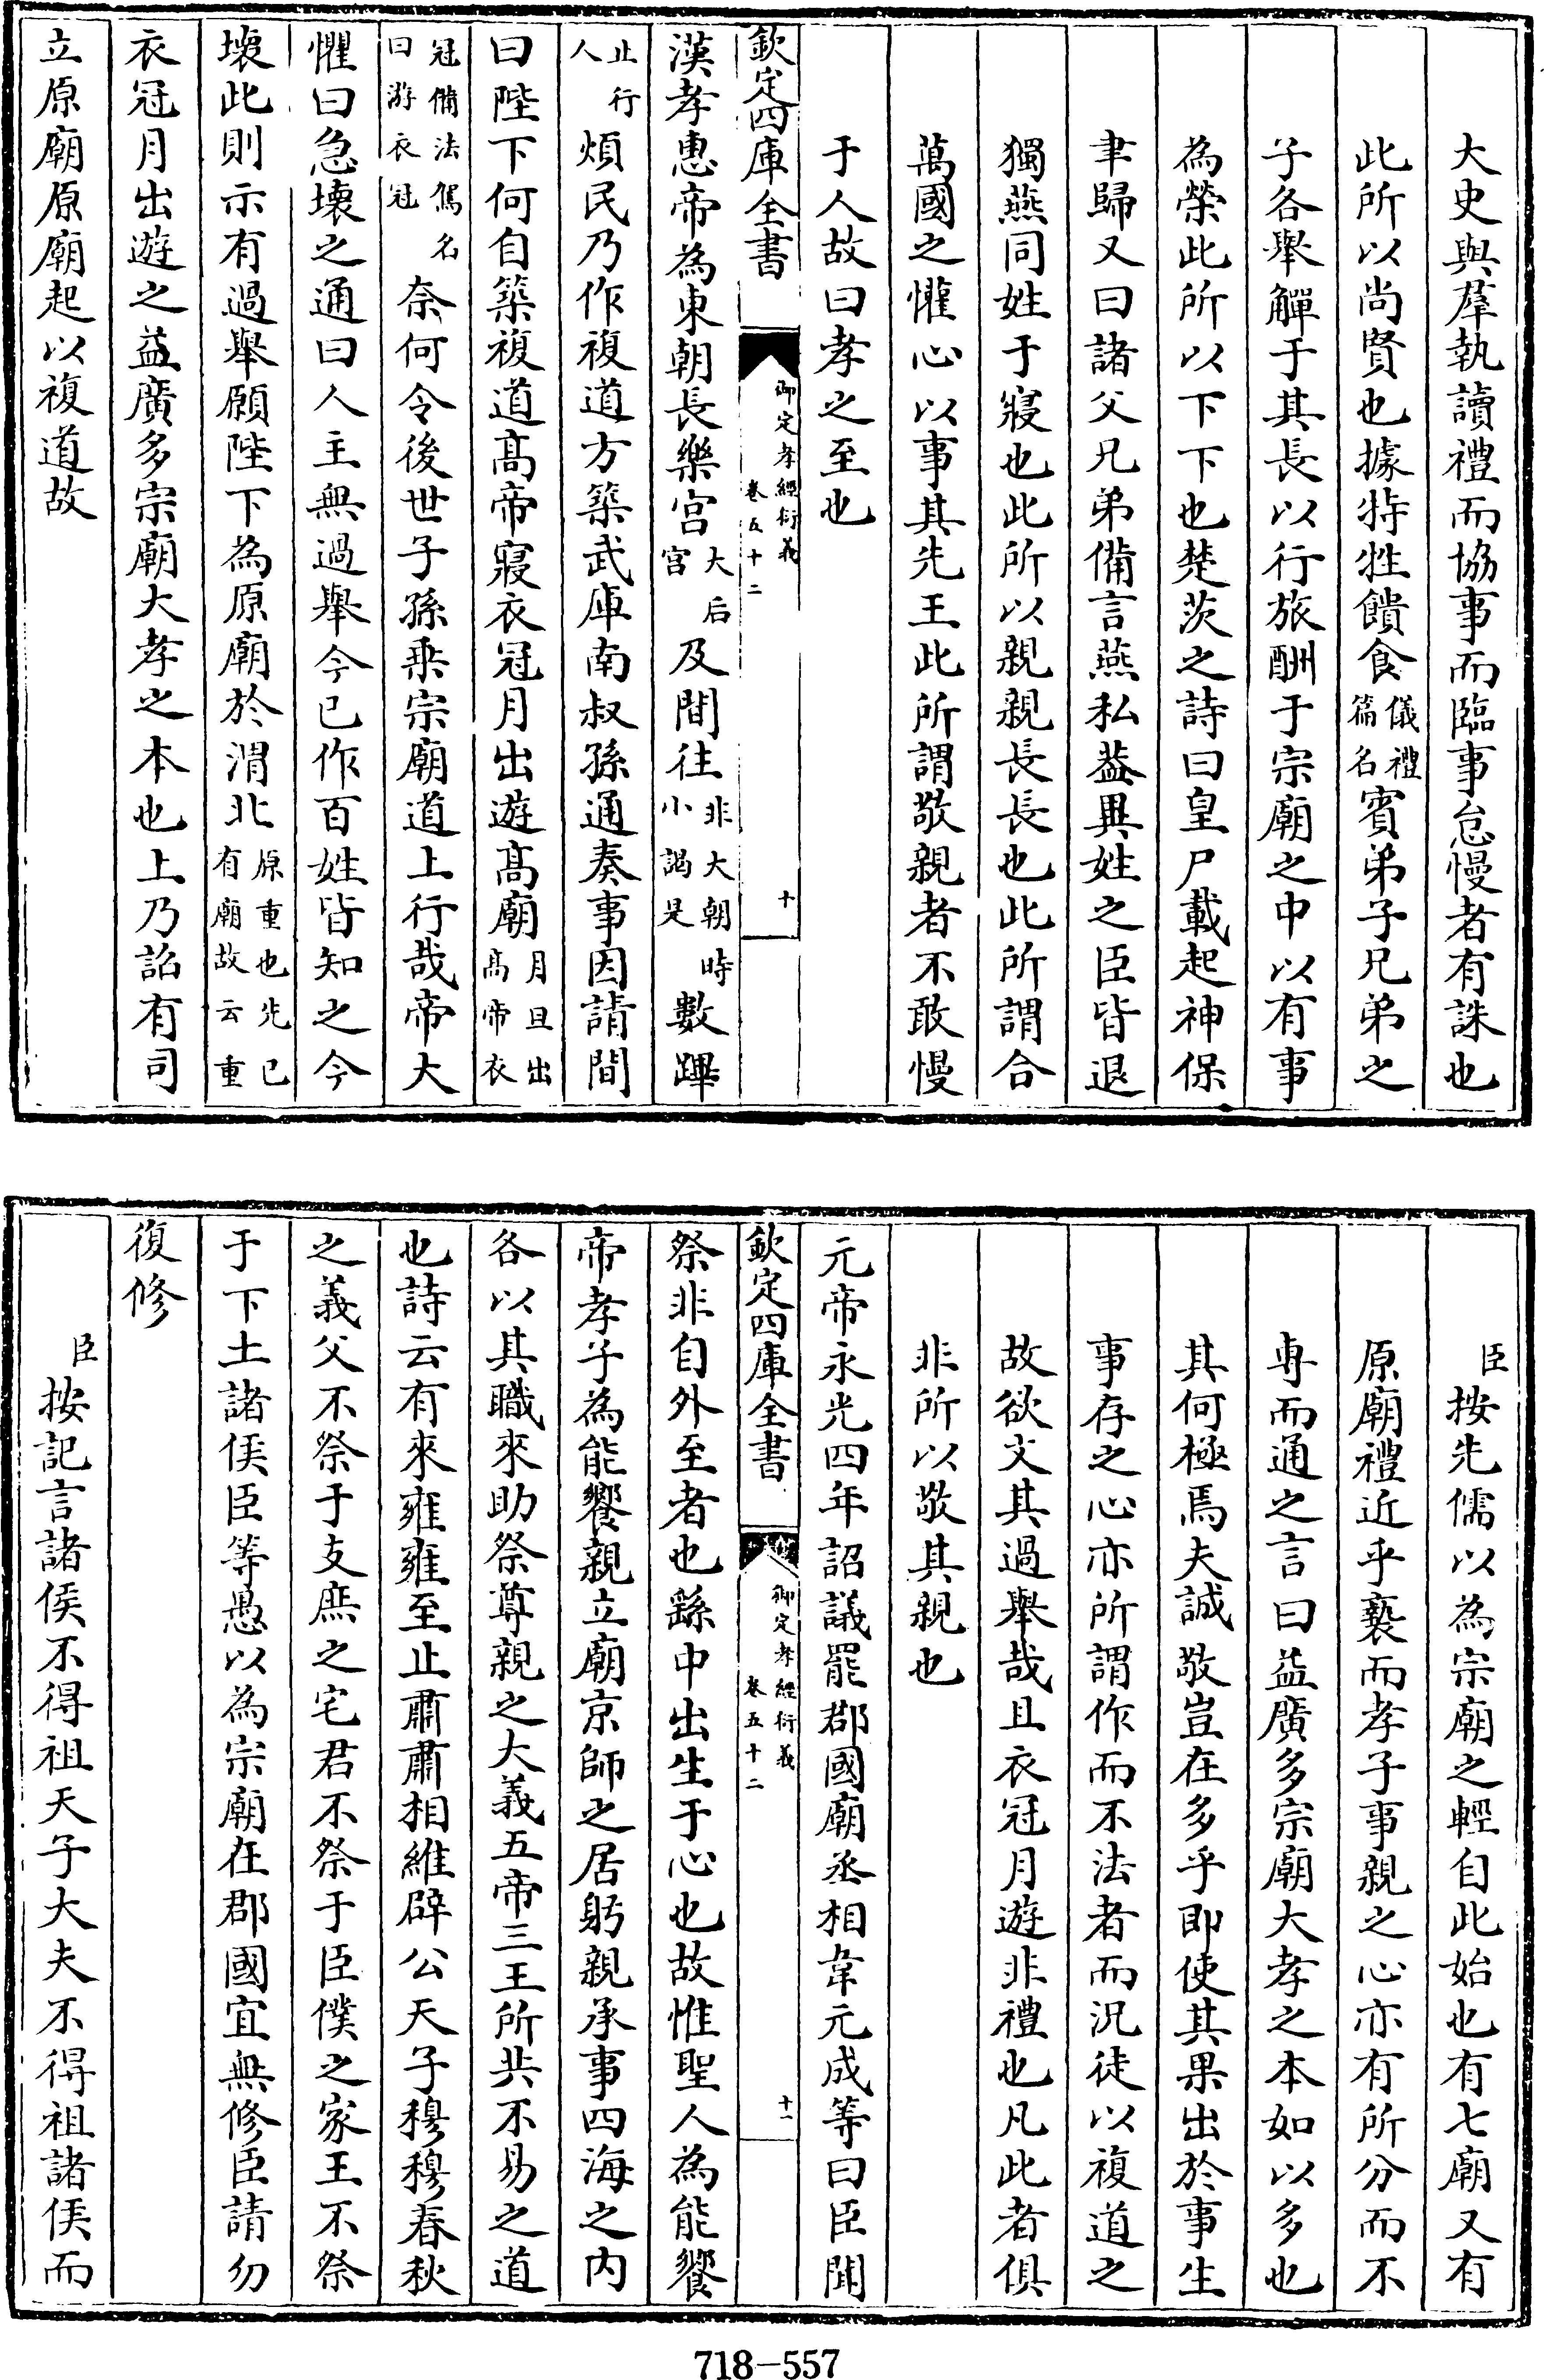 大史與羣執讀禮而協事而臨事怠慢者有誅也
此所以尚賢也據特牲饋食儀禮篇名賓弟子兄弟之
子各舉觶于其長以行旅酬于宗廟之中以有事
為榮此所以下下也楚茨之詩曰皇尸載起神保
聿歸又曰諸父兄弟備言燕私葢異姓之臣皆退
獨燕同姓于寢也此所以親親長長也此所謂合
萬國之懽心以事其先王此所謂敬親者不敢慢
于人故曰孝之至也
欽定四庫全書 御定孝經衍義 卷五十二 十
漢孝惠帝為東朝長樂宮大后宮及間往非大朝時小謁是數蹕
止行人煩民乃作複道方築武庫南叔孫通奏事因請間
曰陛下何自築複道髙帝寢衣冠月出遊髙廟月旦出髙帝衣
冠備法駕名曰游衣冠奈何令後世子孫乗宗廟道上行哉帝大
懼曰急壞之通曰人主無過舉今已作百姓皆知之今
壞此則示有過舉願陛下為原廟於渭北原重也先已有廟故云重
衣冠月出遊之益廣多宗廟大孝之本也上乃詔有司
立原廟原廟起以複道故
臣按先儒以為宗廟之輕自此始也有七廟又有
原廟禮近乎褻而孝子事親之心亦有所分而不
専而通之言曰益廣多宗廟大孝之本如以多也
其何極焉夫誠敬豈在多乎即使其果出於事生
事存之心亦所謂作而不法者而況徒以複道之
故欲文其過舉哉且衣冠月遊非禮也凡此者俱
非所以敬其親也
元帝永光四年詔議罷郡國廟丞相韋元成等曰臣聞
欽定四庫全書 御定孝經衍義 卷五十二 十一
祭非自外至者也繇中出生于心也故惟聖人為能饗
帝孝子為能饗親立廟京師之居躬親承事四海之内
各以其職來助祭尊親之大義五帝三王所共不易之道
也詩云有來雍雍至止肅肅相維辟公天子穆穆春秋
之義父不祭于支庶之宅君不祭于臣僕之家王不祭
于下土諸侯臣等愚以為宗廟在郡國宜無修臣請勿
復修
臣按記言諸侯不得祖天子大夫不得祖諸侯而
718-557